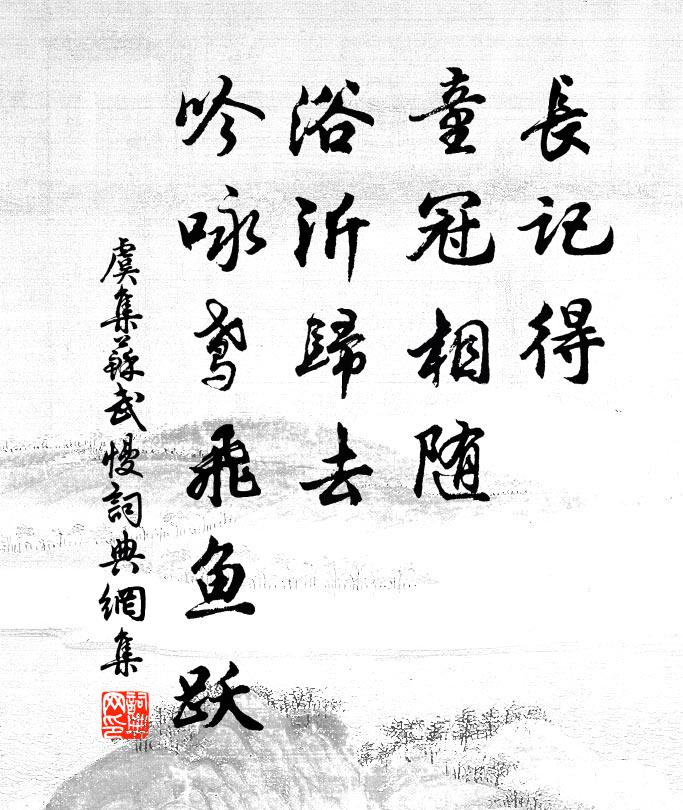 長記得
童冠相随
浴沂歸去
吟咏鸢飛鱼跃
虞集蘇武慢詞典網集